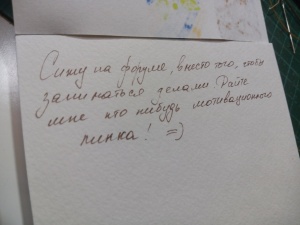 Сижу на форуме, вместо того, чтобы
заниматься делами. Дайте
мне кто нибудь мотивационного
пинка! =)